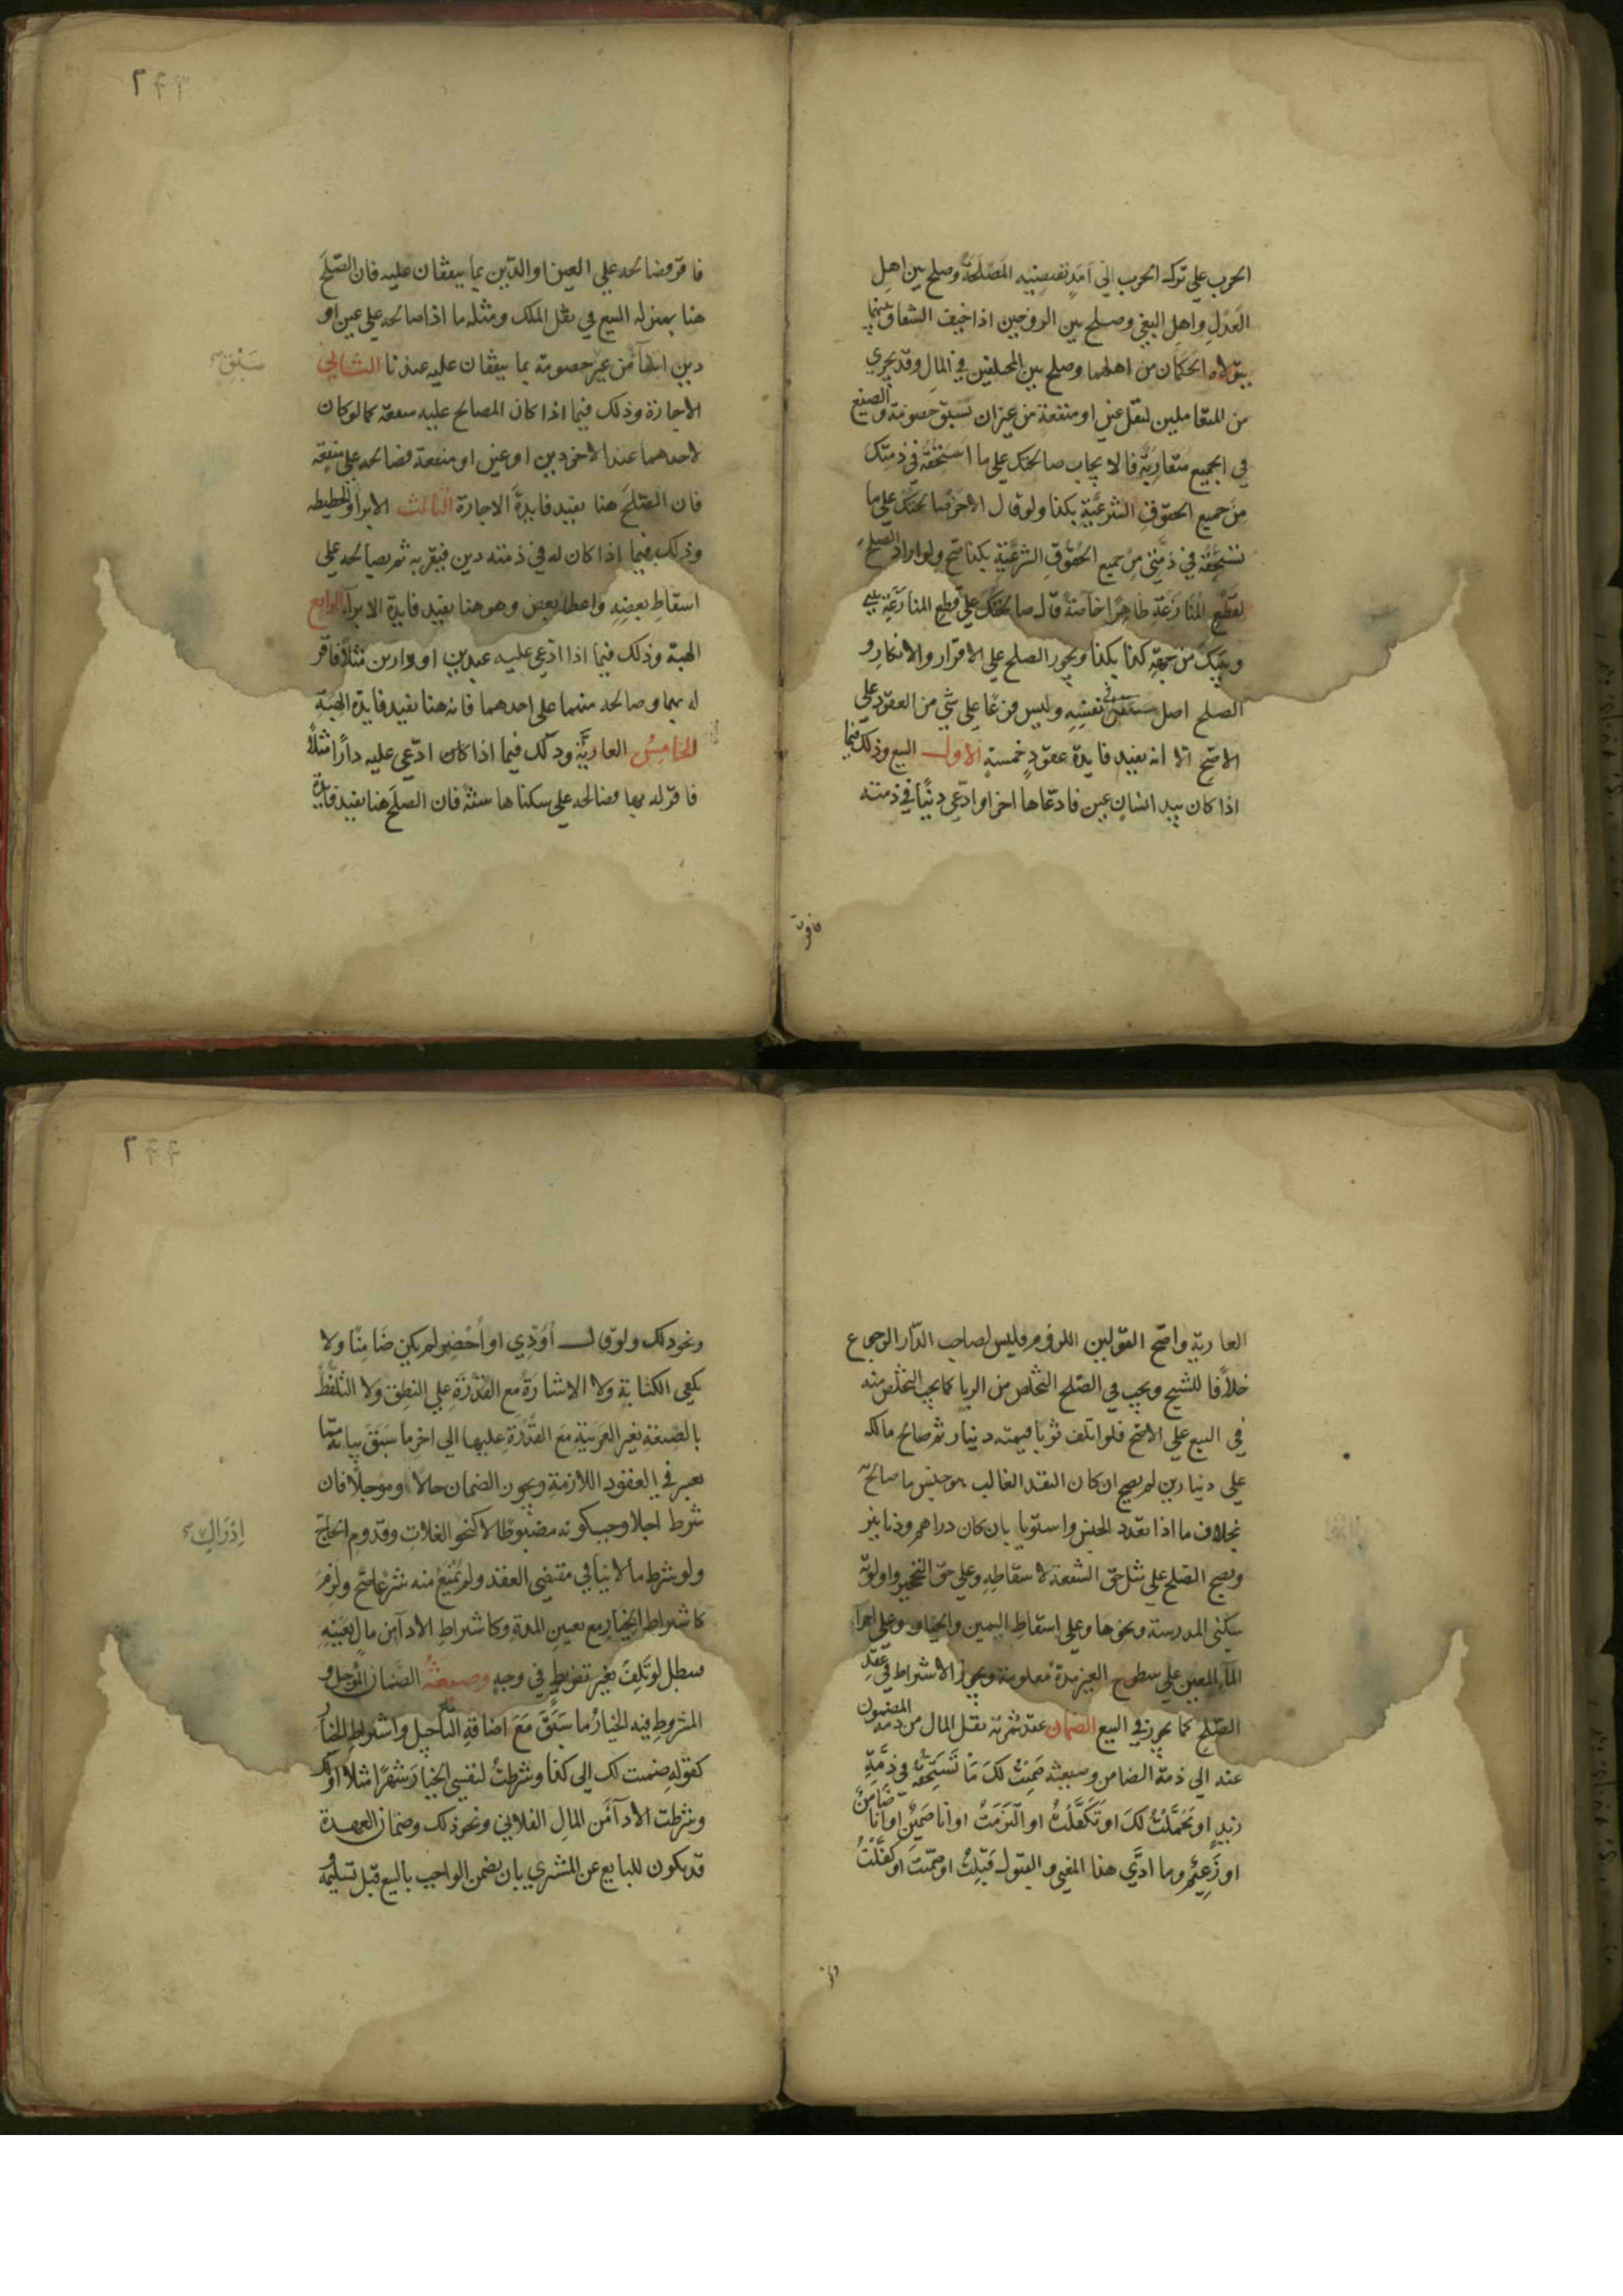 الحرب على ترك الحرب الى امد تقتضيه المصلحة وصلح بين اهل
العدل واهل البغي وصلح بين الزوجين اذا خيف الشقاق بينهما
يتولاه الحكمان من اهلهما وصلح بين المختلفين في المال وقد يجري
من المتعاملين لنقل عين او منفعة من غير ان تسبق خصومة والصيغ
في الجميع متقاربة فالايجاب صالحتك على ما استحقه في ذمتك
من جميع الحقوق الشرعية بكذا ولو قال الاخر صالحتك على ما
تستحقه في ذمتي من جميع الحقوق الشرعية بكذا صح ولو اراد الصلح
لقطع المنازعة ظاهرا خاصة قال صالحتك على قطع المنازعة بيني
وبينك من جهة كذا بكذا ويجوز الصلح على الاقرار والانكار و
الصلح اصل في نفسه وليس فرعا على شي من العقود على
الاصح الا انه يفيد فايدة عقود خمسة الاول البيع وذلك فيما
اذا كان بيد انسان عين فادعاها اخر او ادعى دينا في ذمته
فاقر
٢٤٣
فاقر فصالحه على العين او الدين بما يتفقان عليه فان الصلح
هنا بمنزله البيع في نقل الملك ومثله ما اذا صالحه على عين او
دين ابتدآ من غير خصومة بما يتفقان عليه عندنا الثاني
الاجازة وذلك فيما اذا كان المصالح عليه منفعة كما لو كان
لاحدهما عند الاخر دين او عين او منفعة فصالحه على منفعة
فان الصلح هنا يفيد فايدة الاجارة الثالث الابرا والحطيطه
وذلك فيما اذا كان له في ذمته دين فيقر به ثم يصالحه على
اسقاط بعضه واعطا بعض وهو هنا يفيد فايدة الابرآء الرابع
الهبة وذلك فيما اذا ادعى عليه عبدين او دارين مثلا فاقر
له بهما وصالحه منهما على احدهما فانه هنا يفيد فايدة الهبة
الخامس العارية وذلك فيما اذا كان ادعى عليه دارا مثلا
فاقر له بها فصالحه على سكناها سنة فان الصلح هنا يفيد فايدة
العارية واصح القولين اللزوم فليس لصاحب الدار الرجوع
خلافا للشيخ ويجب في الصلح التخلص من الربا كما يجب التخلص منه
في البيع على الاصح فلو اتلف ثوبا قيمته دينار ثم صالح مالكه
على دينارين لم يصح ان كان النقد الغالب هو جنس ما صالح
بخلاف ما اذا تعدد الجنس واستويا بان كان دراهم ودنانير
ويصح الصلح على مثل حق الشفعة لاسقاطه وعلى حق التحجير واولوية
سكنى المدرسة ونحوها وعلى اسقاط اليمين والخيار وعلى اجرا
المآء المعين على سطوح الغير مدة معلومة ويجوز الاشتراط في عقد
الصلح كما يجوز في البيع الضمان عقد ثمرته نقل المال من ذمة المضمون
عنه الى ذمة الضامن وصيغته ضمنت لك ما تستحقه في ذمة
زيد او تحملت لك او تكفلت او التزمت او انا ضمين او انا ضامن
او زعيم وما ادى هذا المعنى والقبول قبلت او ضمنت او كفلت
ونحو
٢٤٤
ونحو ذلك ولو قال اؤدي او احضر لم يكن ضامنا ولا
يكفي الكتابة ولا الاشارة مع القدرة على النطق ولا التلفظ
بالصيغة بغير العربية مع القدرة عليها الى اخر ما سبق بيانه مما
يعتبر في العقود اللازمة ويجوز الضمان حالا ومؤجلا فان
شرط اجلا وجب كونه مضبوطا لا كنحو الغلات وقدوم الحاج
ولو شرط ما لا ينافي مقتضى العقد ولم يمنع منه شرعا صح ولزم
كاشتراط الخيار مع تعيين المدة وكاشتراط الادآ من مال بعينه
ادراك
فيبطل لو تلف بغير تفريط في وجه وصيغة الضمان المؤجل و
المشروط فيه الخيار ما سبق مع اضافة التأجيل واشتراط الخيار
كقوله ضمنت لك الى كذا وشرطت لنفسي الخيار شهرا مثلا او
وشرطت الادآ من المال الفلاني ونحو ذلك وضمان العهدة
قد يكون للبايع عن المشتري بان يضمن الواجب بالبيع قبل تسليمه